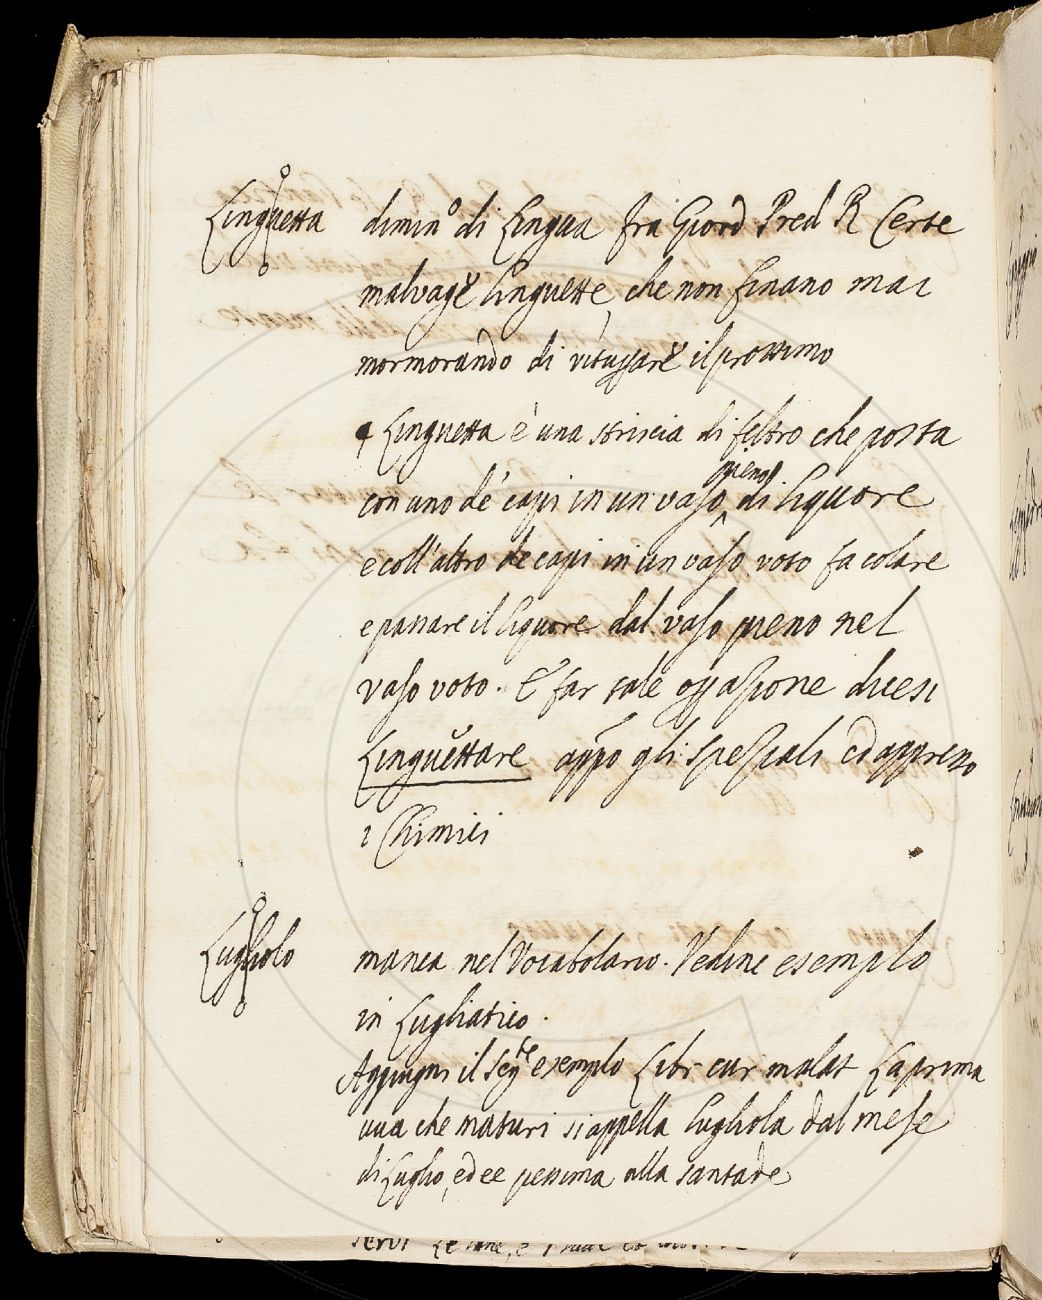 Linguetta dimin° di Lingua Fra Giord Pred R Certe
malvage linguette, che non finano mai
mormorando di vituperare il prossimo
¶ Linguetta è una striscia di feltro che posta
con uno de' capi in un vaso pieno di liquore
e coll'altro de capi in un vaso voto fa colare
e passare il liquore dal vaso pieno nel
vaso voto. E far tale operazione dicesi
Linguettare appo gli speziali ed appresso
i Chimici
Lugliolo manca nel Vocabolario. Vedine esemplo
in Lugliatico.
Aggiugni il seg.te esemplo Libr cur malat La prima
uva che maturi si appella lugliola dal mese
di Luglio, ed ee pessima alla santade